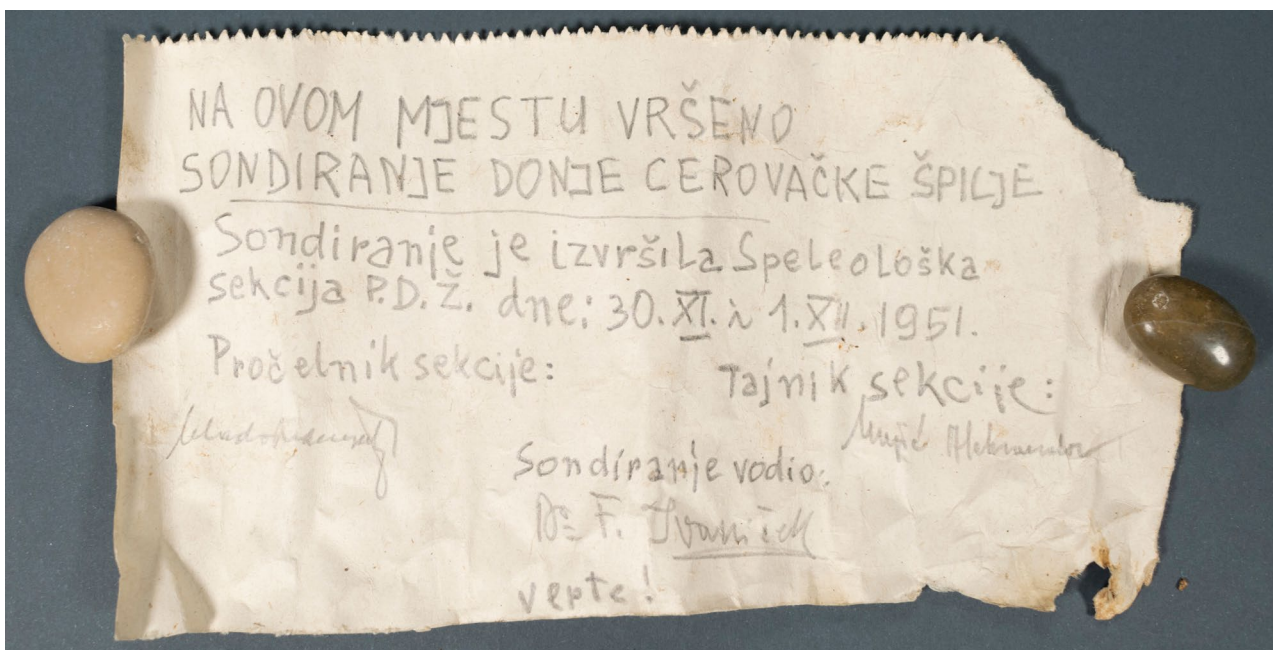 NA OVOM MJESTU VRŠENO
SONDIRANJE DONJE CEROVAČKE ŠPILJE
Sondiranje je izvršila Speleološka
sekcija P.D.Ž. dne: 30. XI. i 1. XII. 1951.
Pročelnik sekcije:
Tajnik sekcije:
Aleksandar
Sondiranje vodio:
Dr F. Ivaniček
verte!